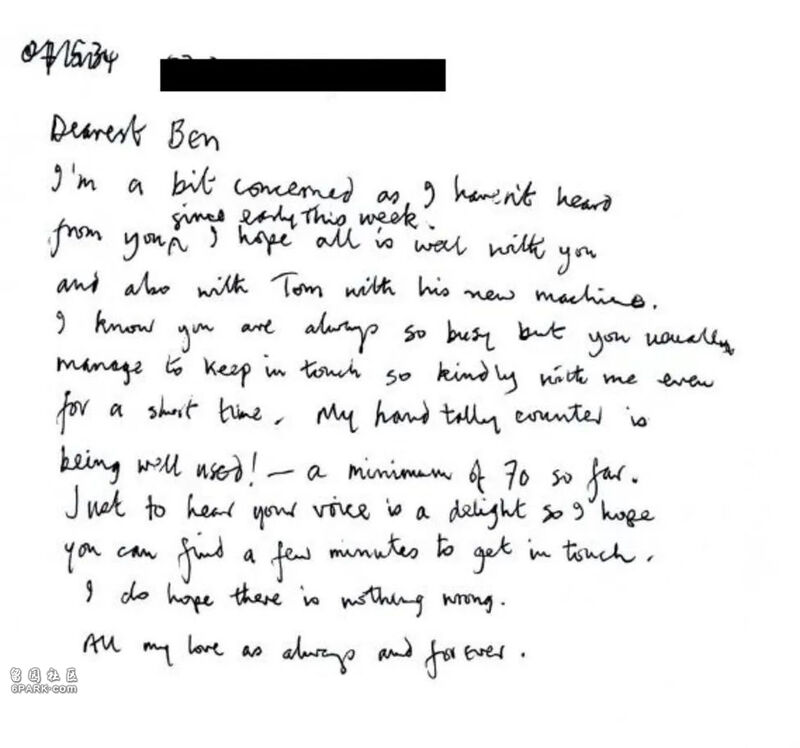 Dearest Ben
I'm a bit concerned as I haven't heard
since early this week.
from you, I hope all is well with you
and also with Tom with his new machine.
I know you are always so busy but you usually
manage to keep in touch so kindly with me even
for a short time. My hand tally counter is
being well used! — a minimum of 70 so far.
Just to hear your voice is a delight so I hope
you can find a few minutes to get in touch.
I do hope there is nothing wrong.
All my love as always and forever.
留园社区
6PARK.com